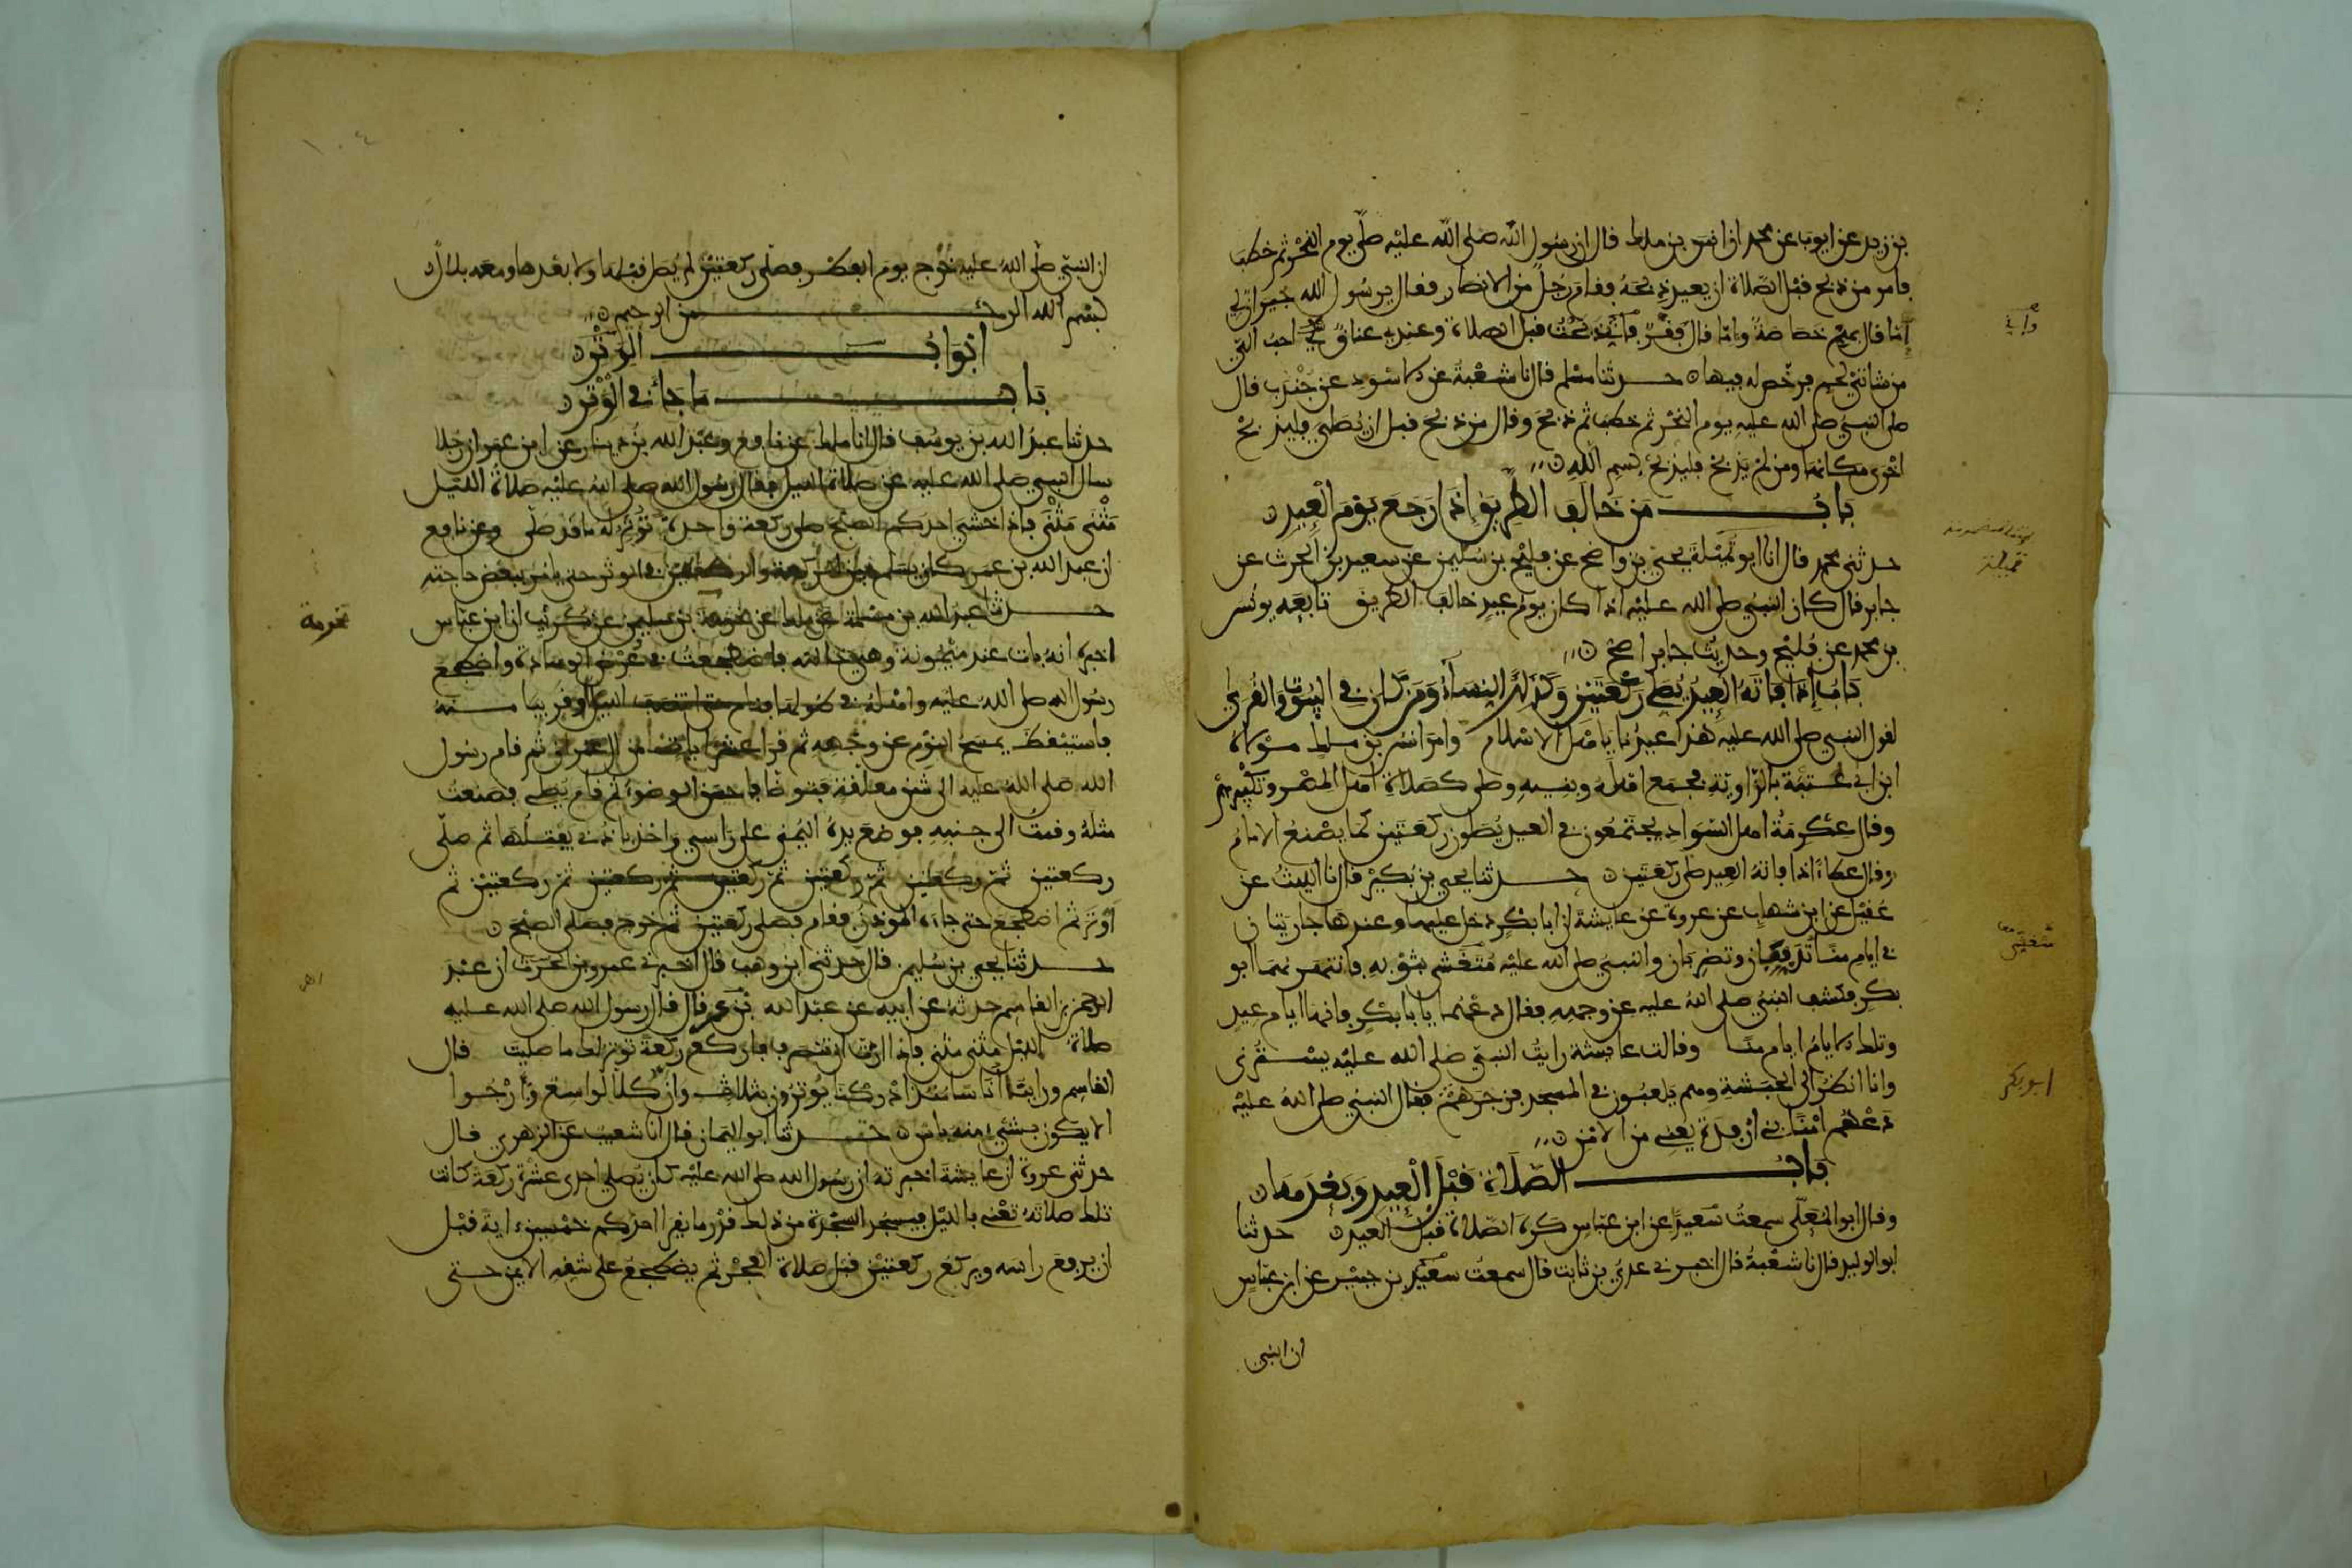 بن زيد عن ايوب عن محمد ان انس بن ملك قال ان رسول الله صلى الله عليه صلى يوم النحر ثم خطب
فامر من ذبح قبل الصلاة ان يعيد ذبحه فقام رجل من الانصار فقال يرسول الله جيران لي
اما قال بهم خصاصة واما قال فقر واني ذبحت قبل الصلاة وعندي عناق لي احب الي
من شاتي لحم فرخص له فيها ۝ حدثنا مسلم قال نا شعبة عن الاسود عن جندب قال
صلى النبي صلى الله عليه يوم النحر ثم خطب ثم ذبح وقال من ذبح قبل ان يصلي فليذبح
اخرى مكانها ومن لم يذبح فليذبح بسم الله ۝
باب من خالف الطريق اذا رجع يوم العيد ۝
حدثني محمد قال انا ابو تميلة يحيى بن واضح عن فليح بن سليمن عن سعيد بن الحرث عن
جابر قال كان النبي صلى الله عليه اذا كان يوم عيد خالف الطريق تابعه يونس
بن محمد عن فليح وحديث جابر اصح ۝
باب إذا فاته العيد يصلي ركعتين وكذلك النساء ومن كان في البيوت والقرى
لقول النبي صلى الله عليه هذا عيدنا يا اهل الاسلام وامر انس بن ملك مولاه
ابن ابي عتبة بالزاوية فجمع اهله وبنيه وصلى كصلاة اهل المصر وتكبيرهم
وقال عكرمة اهل السواد يجتمعون في العيد يصلون ركعتين كما يصنع الامام
وقال عطاء اذا فاته العيد صلى ركعتين ۝ حدثنا يحيى بن بكير قال نا الليث عن
عقيل عن ابن شهاب عن عروة عن عايشة ان ابا بكر دخل عليها وعندها جاريتان
في ايام منا تدففان وتضربان والنبي صلى الله عليه متغشى بثوبه فانتهرهما ابو
بكر فكشف النبي صلى الله عليه عن وجهه فقال دعهما يا با بكر فانها ايام عيد
وتلك الايام ايام منا وقالت عايشة رايت النبي صلى الله عليه يسترني
وانا انظر الى الحبشة وهم يلعبون في المسجد فزجرهم فقال النبي صلى الله عليه
دعهم امنا بني ارفدة يعني من الامن ۝
باب الصلاة قبل العيد وبعدها ۝
وقال ابو المعلى سمعت سعيدا عن ابن عباس كره الصلاة قبل العيد ۝ حدثنا
ابو الوليد قال نا شعبة قال اخبرني عدي بن ثابت قال سمعت سعيد بن جبير عن ابن عباس
ان النبي
واني
تميلة
متغشي
ابو بكر
١٠٤
ان النبي صلى الله عليه خرج يوم الفطر فصلى ركعتين لم يصل قبلها ولا بعدها ومعه بلال ۝
بسم الله الرحمن الرحيم ۝
ابواب الوتر ۝
باب ما جاء في الوتر ۝
حدثنا عبد الله بن يوسف قال انا ملك عن نافع وعبد الله بن دينار عن ابن عمر ان رجلا
سال النبي صلى الله عليه عن صلاة الليل فقال رسول الله صلى الله عليه صلاة الليل
مثنى مثنى فاذا خشي احدكم الصبح صلى ركعة واحدة توتر له ما قد صلى وعن نافع
ان عبد الله بن عمر كان يسلم بين الركعة والركعتين في الوتر حتى يامر ببعض حاجته
حدثنا عبد الله بن مسلمة عن ملك عن مخرمة بن سليمن عن كريب ان ابن عباس
اخبره انه بات عند ميمونة وهي خالته فاضطجعت في عرض الوسادة واضطجع
رسول الله صلى الله عليه واهله في طولها فنام حتى انتصف الليل او قريبا منه
فاستيقظ يمسح النوم عن وجهه ثم قرا عشر ايات من ال عمران ثم قام رسول
الله صلى الله عليه الى شن معلقة فتوضا فاحسن الوضوء ثم قام يصلي فصنعت
مثله وقمت الى جنبه فوضع يده اليمنى على راسي واخذ باذني يفتلها ثم صلى
ركعتين ثم ركعتين ثم ركعتين ثم ركعتين ثم ركعتين ثم ركعتين ثم
اوتر ثم اضطجع حتى جاءه الموذن فقام فصلى ركعتين ثم خرج فصلى الصبح ۝
حدثنا يحيى بن سليمن قال حدثني ابن وهب قال اخبرني عمرو بن الحرث ان عبد
الرحمن بن القاسم حدثه عن ابيه عن عبد الله بن عمر قال قال رسول الله صلى الله عليه
صلاة الليل مثنى مثنى فاذا اردت ان تنصرف فاركع ركعة توتر لك ما صليت قال
القاسم وراينا اناسا منذ ادركنا يوترون بثلاث وان كلا لواسع وارجوا
الا يكون بشيء منه باس ۝ حدثنا ابو اليمان قال انا شعيب عن الزهري قال
حدثني عروة ان عايشة اخبرته ان رسول الله صلى الله عليه كان يصلي احدى عشرة ركعة كانت
تلك صلاته تعني بالليل فيسجد السجدة من ذلك قدر ما يقرا احدكم خمسين اية قبل
ان يرفع راسه ويركع ركعتين قبل صلاة الفجر ثم يضطجع على شقه الايمن حتى
مخرمة